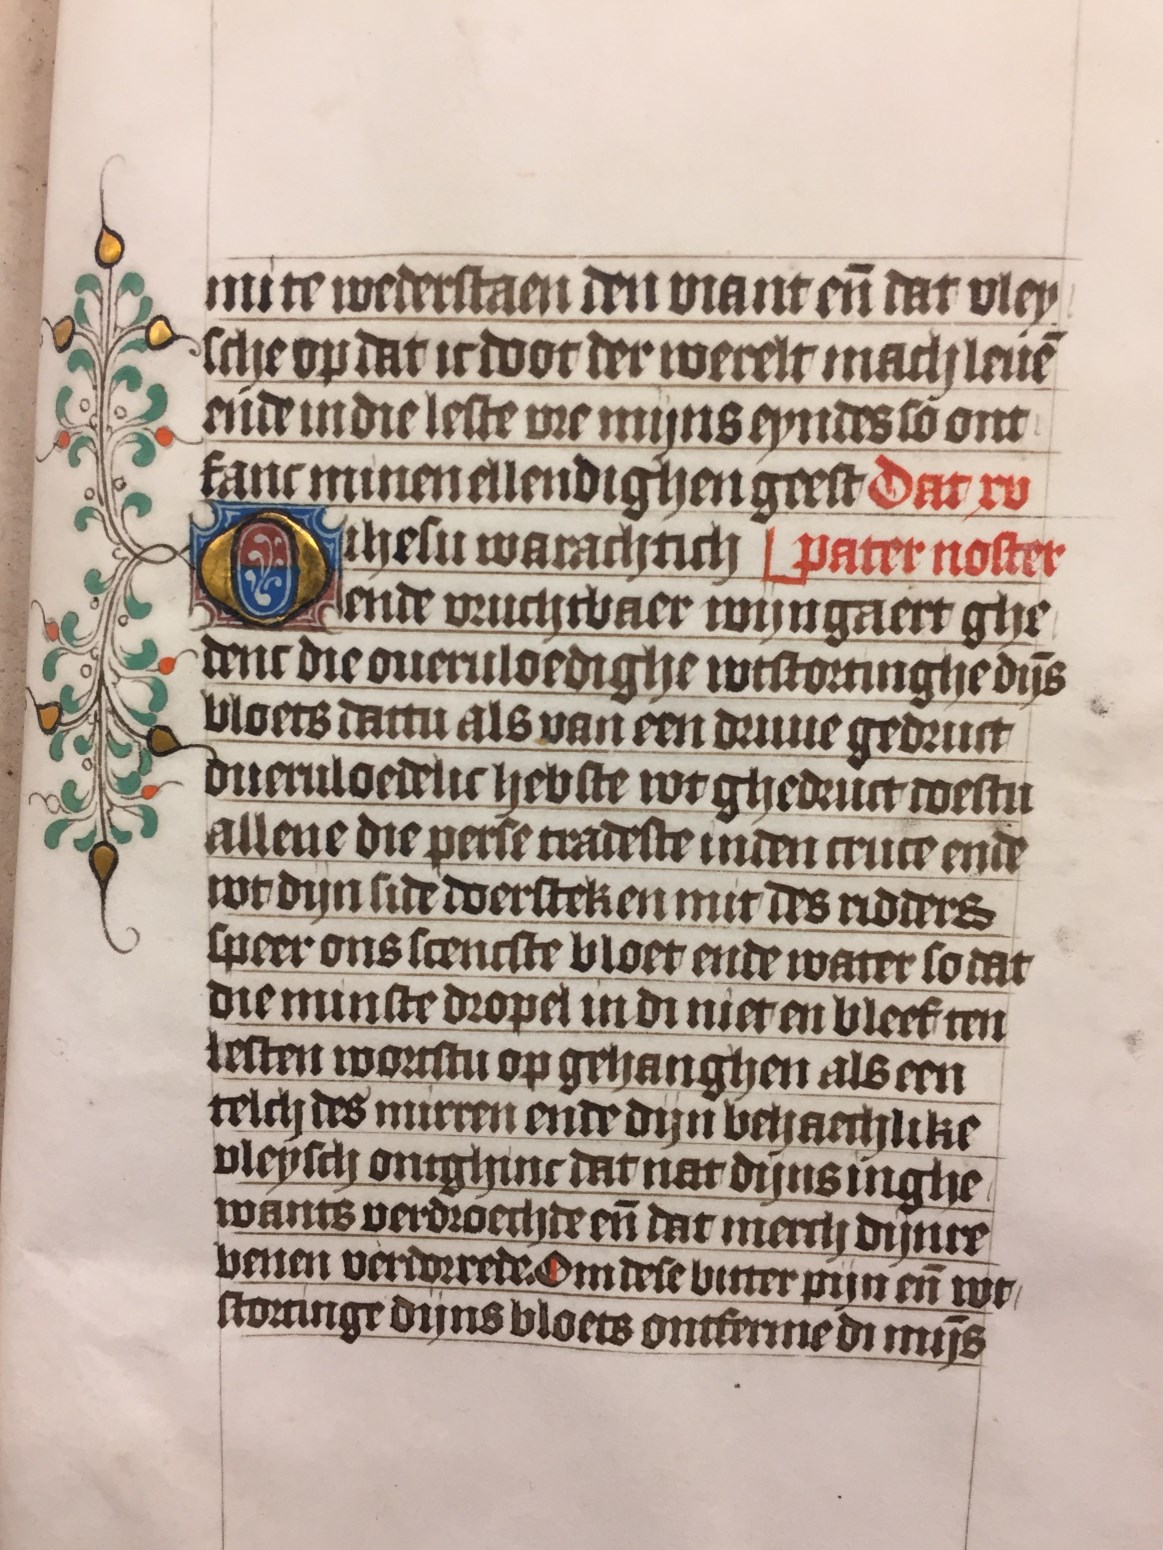 mi te wederstaen den viant en̄ dat vley
sche op dat ic doot der werelt mach leuē
ende in die leste vre mijns eyndes so ont
fanc minen ellendighen geest Dat xv
O ihesu warachtich pater noster
ende vruchtbaer wijngaert ghe
denc die oueruloedighe wtstortinghe dij̄s
bloets dattu als van een druue gedruct
oueruloedelic hebste wt ghedruct doestu
allene die perse tradeste inden cruce ende
wt dijn side doersteken mit des ridders
speer ons scencste bloet ende water so dat
die minste dropel in di niet en bleef ten
lesten wortstu op gehanghen als een
telch des mirren ende dijn behaechlike
vleysch ontghinc dat nat dijns inghe
wants verdroechde en̄ dat merch dijnre
benen verdorrede. Om dese bitter pijn en̄ wt
stortinge dijns bloets ontferme di mij̄s